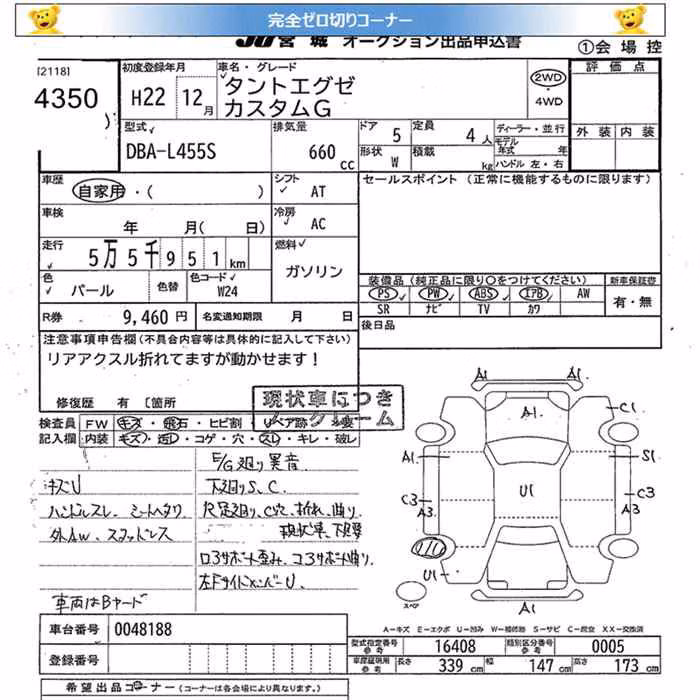 完全ゼロ切りコーナー
JU宮城 オークション出品申込書
①会場控
[2118]
4350
初度登録年月
H22 12月
車名・グレード
タントエグゼ
カスタムG
2WD
・
4WD
評価点
外装 内装
型式
DBA-L455S
排気量
660 cc
ドア 5
定員 4人
形状 W
積載 kg
ディーラー・並行
モデル年式 年式
ハンドル 左・右
車歴
自家用・( )
シフト AT
セールスポイント (正常に機能するものに限ります)
車検
年 月( 日)
冷房 AC
走行
5万5千951km
燃料 ガソリン
色 パール
色替
色コード W24
装備品 (純正品に限り○をつけてください)
新車保証書
PS PW ABS エアB AW
SR ナビ TV カワ
有・無
R券 9,460円
名変通知期限 月 日
後日品
注意事項申告欄(不具合内容等は具体的に記入して下さい)
リアアクスル折れてますが動かせます!
修復歴 有 [箇所
現状車につき
ノークレーム
検査員 FW キズ・飛石・ヒビ割・リペア跡・必要
記入欄 内装 キズ・汚レ・コゲ・穴・スレ・キレ・破レ
キズU
ハンドルスレ、シートヘタリ
外AW、スタッドレス
車両はBヤード
E/G廻り異音
下廻りS、C
R足廻り、C穴、折れ、曲り
現状車、下見要
ロアサポート歪み、コアサポート曲り
左FサイドメンバーU
A1
A1
A1
C1
A1
S1
U1
C3
A3
C3
A3
U1
スペア
A1
A1
A-キズ E-エクボ U-凹み W-補修跡 S-サビ C-腐食 XX-交換済
車台番号 0048188
登録番号
型式指定番号 参考 16408
類別区分番号 参考 0005
車庫証明用 参考 長さ 339cm 幅 147cm 高さ 173cm
希望出品コーナー (コーナーは各会場により異なります。)